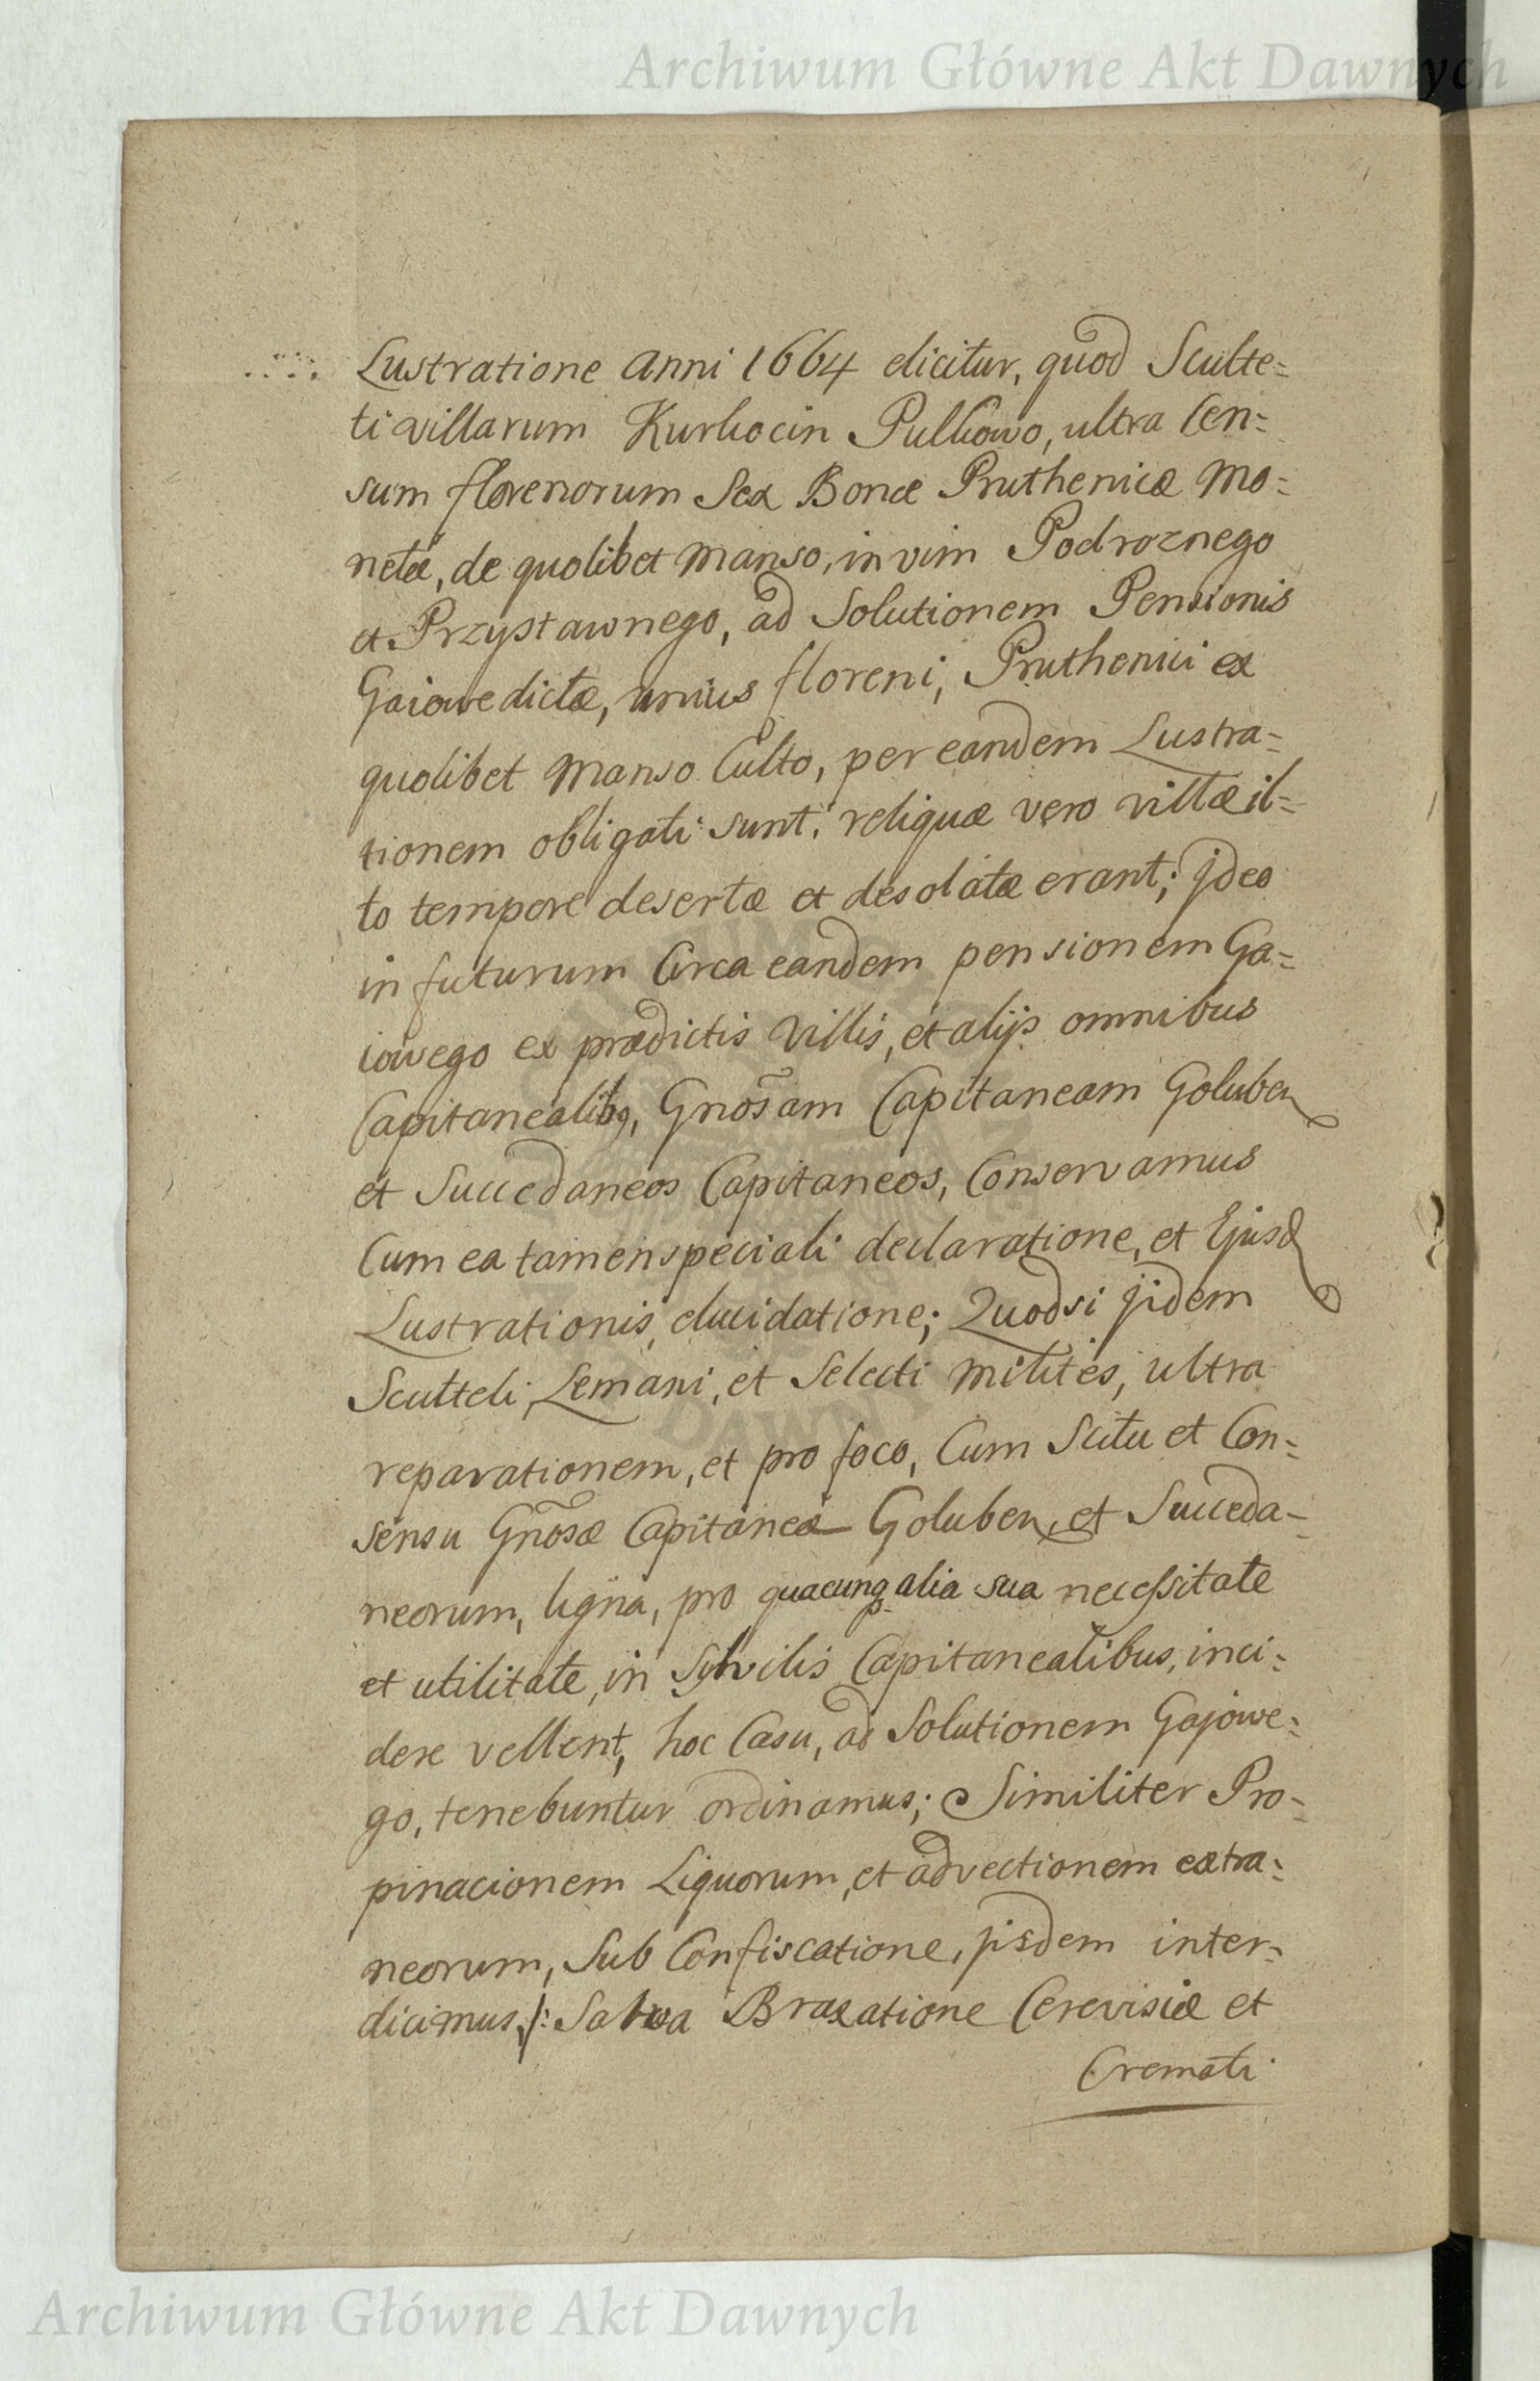 Archiwum Główne Akt Dawnych
Lustratione Anni 1664 elicitur, quod Sculte=
ti villarum Kurkocin Pulkowo, ultra Cen=
sum florenorum Sex Bonæ Pruthenicæ Mo=
netæ, de quolibet Manso, in vim Podroznego
et Przystawnego, ad Solutionem Pensionis
Gaiowe dictæ, unius floreni, Pruthenici ex
quolibet Manso Culto, per eandem Lustra=
tionem obligati sunt, reliquæ vero villæ il=
lo tempore desertæ et desolatæ erant; Jdeo
in futurum Circa eandem pensionem Ga=
iowego ex prædictis Villis, et alijs omnibus
Capitanealibq, Gnosam Capitaneam Goluben
et Succedaneos Capitaneos, Conservamus
Cum ea tamen speciali declaratione, et Ejusd
Lustrationis elucidatione; Quodsi jidem
Sculteti, Lemani, et Selecti Milites, ultra
reparationem, et pro foco, Cum Scitu et Con=
sensu Gnosæ Capitaneæ Goluben, et Succeda=
neorum, ligna, pro quacunq alia sua necessitate
et utilitate, in Sylvilis Capitanealibus, inci=
dere vellent, hoc Casu, ad Solutionem Gajowe=
go, tenebuntur ordinamus; Similiter Pro=
pinacionem Liquorum, et advectionem extra=
neorum, Sub Confiscatione, jisdem inter=
dicimus /: Salva Braxatione Cerevisiæ et
Cremati
Archiwum Główne Akt Dawnych